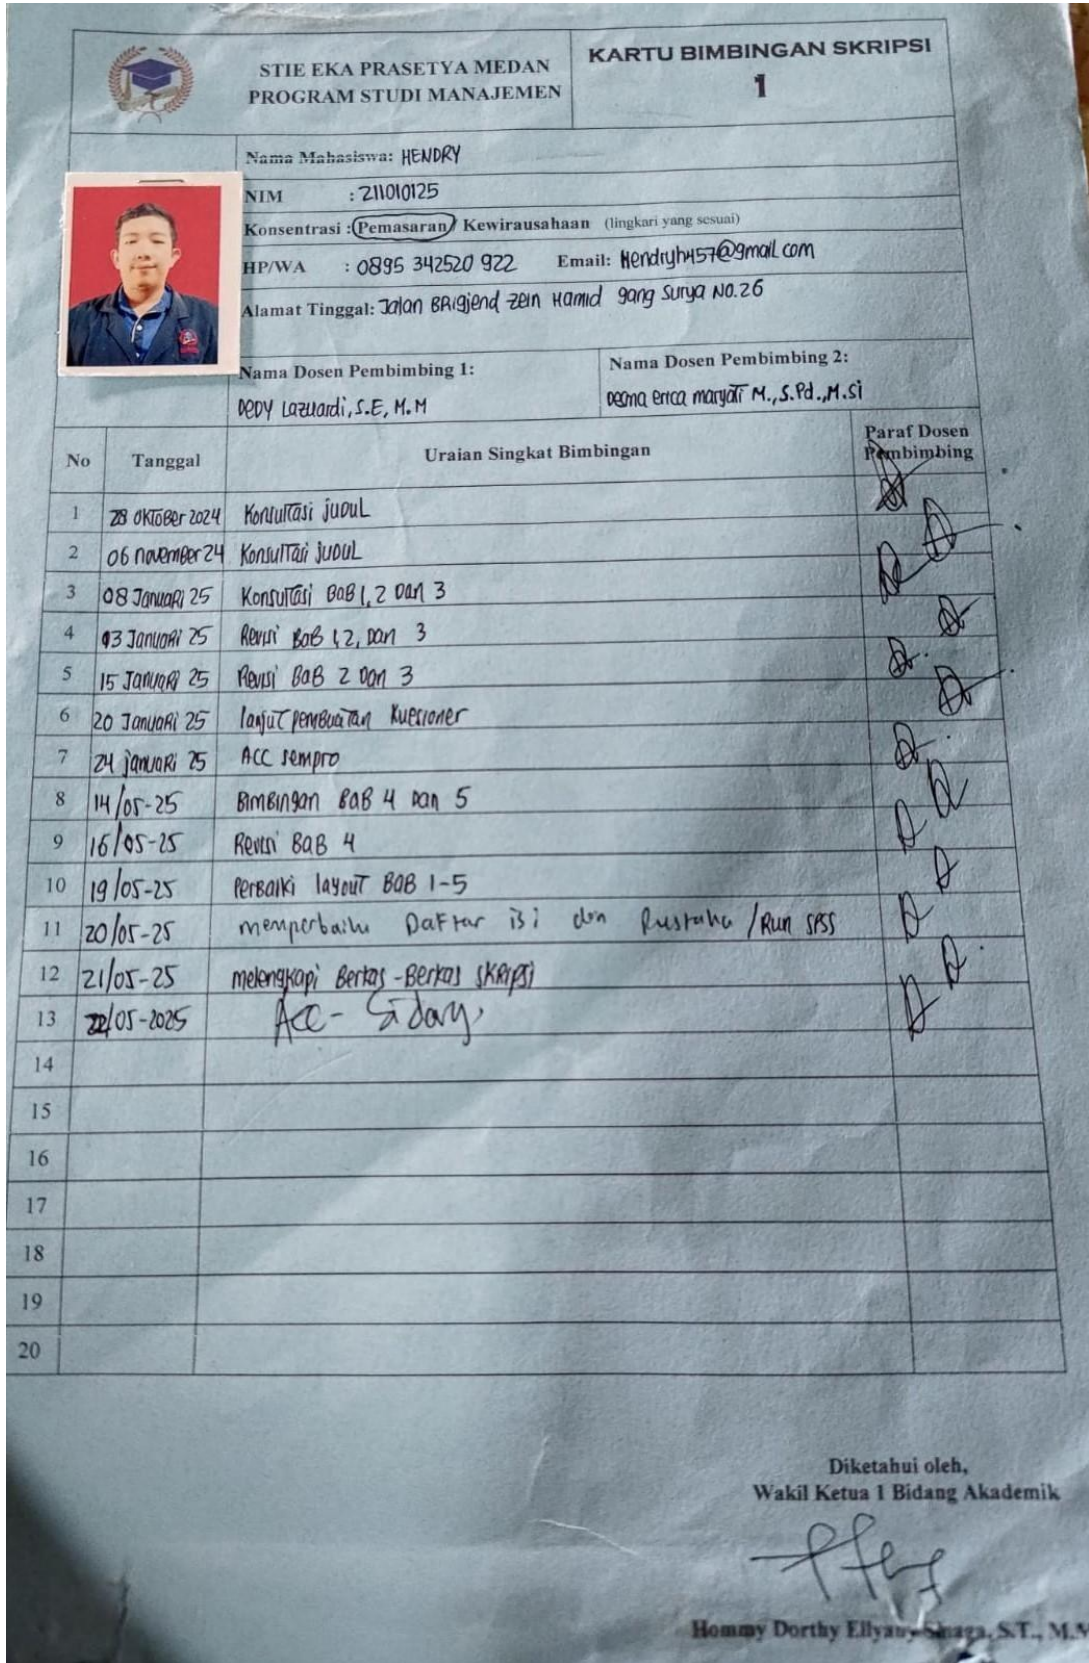 STIE EKA PRASETYA MEDAN
PROGRAM STUDI MANAJEMEN
KARTU BIMBINGAN SKRIPSI
1
Nama Mahasiswa: HENDRY
NIM : 211010125
Konsentrasi : Pemasaran/ Kewirausahaan (lingkari yang sesuai)
HP/WA : 0895 342520 922 Email: Hendryh457@gmail.com
Alamat Tinggal: Jalan BRigjend zein Hamid gang surya No.26
Nama Dosen Pembimbing 1:
DEDY Lazuardi, S.E, M.M
Nama Dosen Pembimbing 2:
Desma erica maryati M., S.Pd., M.Si
No Tanggal Uraian Singkat Bimbingan Paraf Dosen Pembimbing
1 28 OKTOBER 2024 Konsultasi juDUL
2 06 november 24 Konsultasi juDUL
3 08 Januari 25 Konsultasi BaB 1, 2 Dan 3
4 13 Januari 25 Revisi BaB 1,2, Dan 3
5 15 Januari 25 Revisi BaB 2 Dan 3
6 20 Januari 25 lanjut pembuatan Kuesioner
7 24 januari 25 ACC sempro
8 14/05-25 Bimbingan BaB 4 Dan 5
9 16/05-25 Revisi BaB 4
10 19/05-25 Perbaiki layout BAB 1-5
11 20/05-25 memperbaiki Daftar isi dan Pustaka /Run SPSS
12 21/05-25 melengkapi Berkas-Berkas SKRIPSi
13 22/05-2025 Acc- Sidang
14
15
16
17
18
19
20
Diketahui oleh,
Wakil Ketua 1 Bidang Akademik
Hommy Dorthy Ellyany Sinaga, S.T., M.M